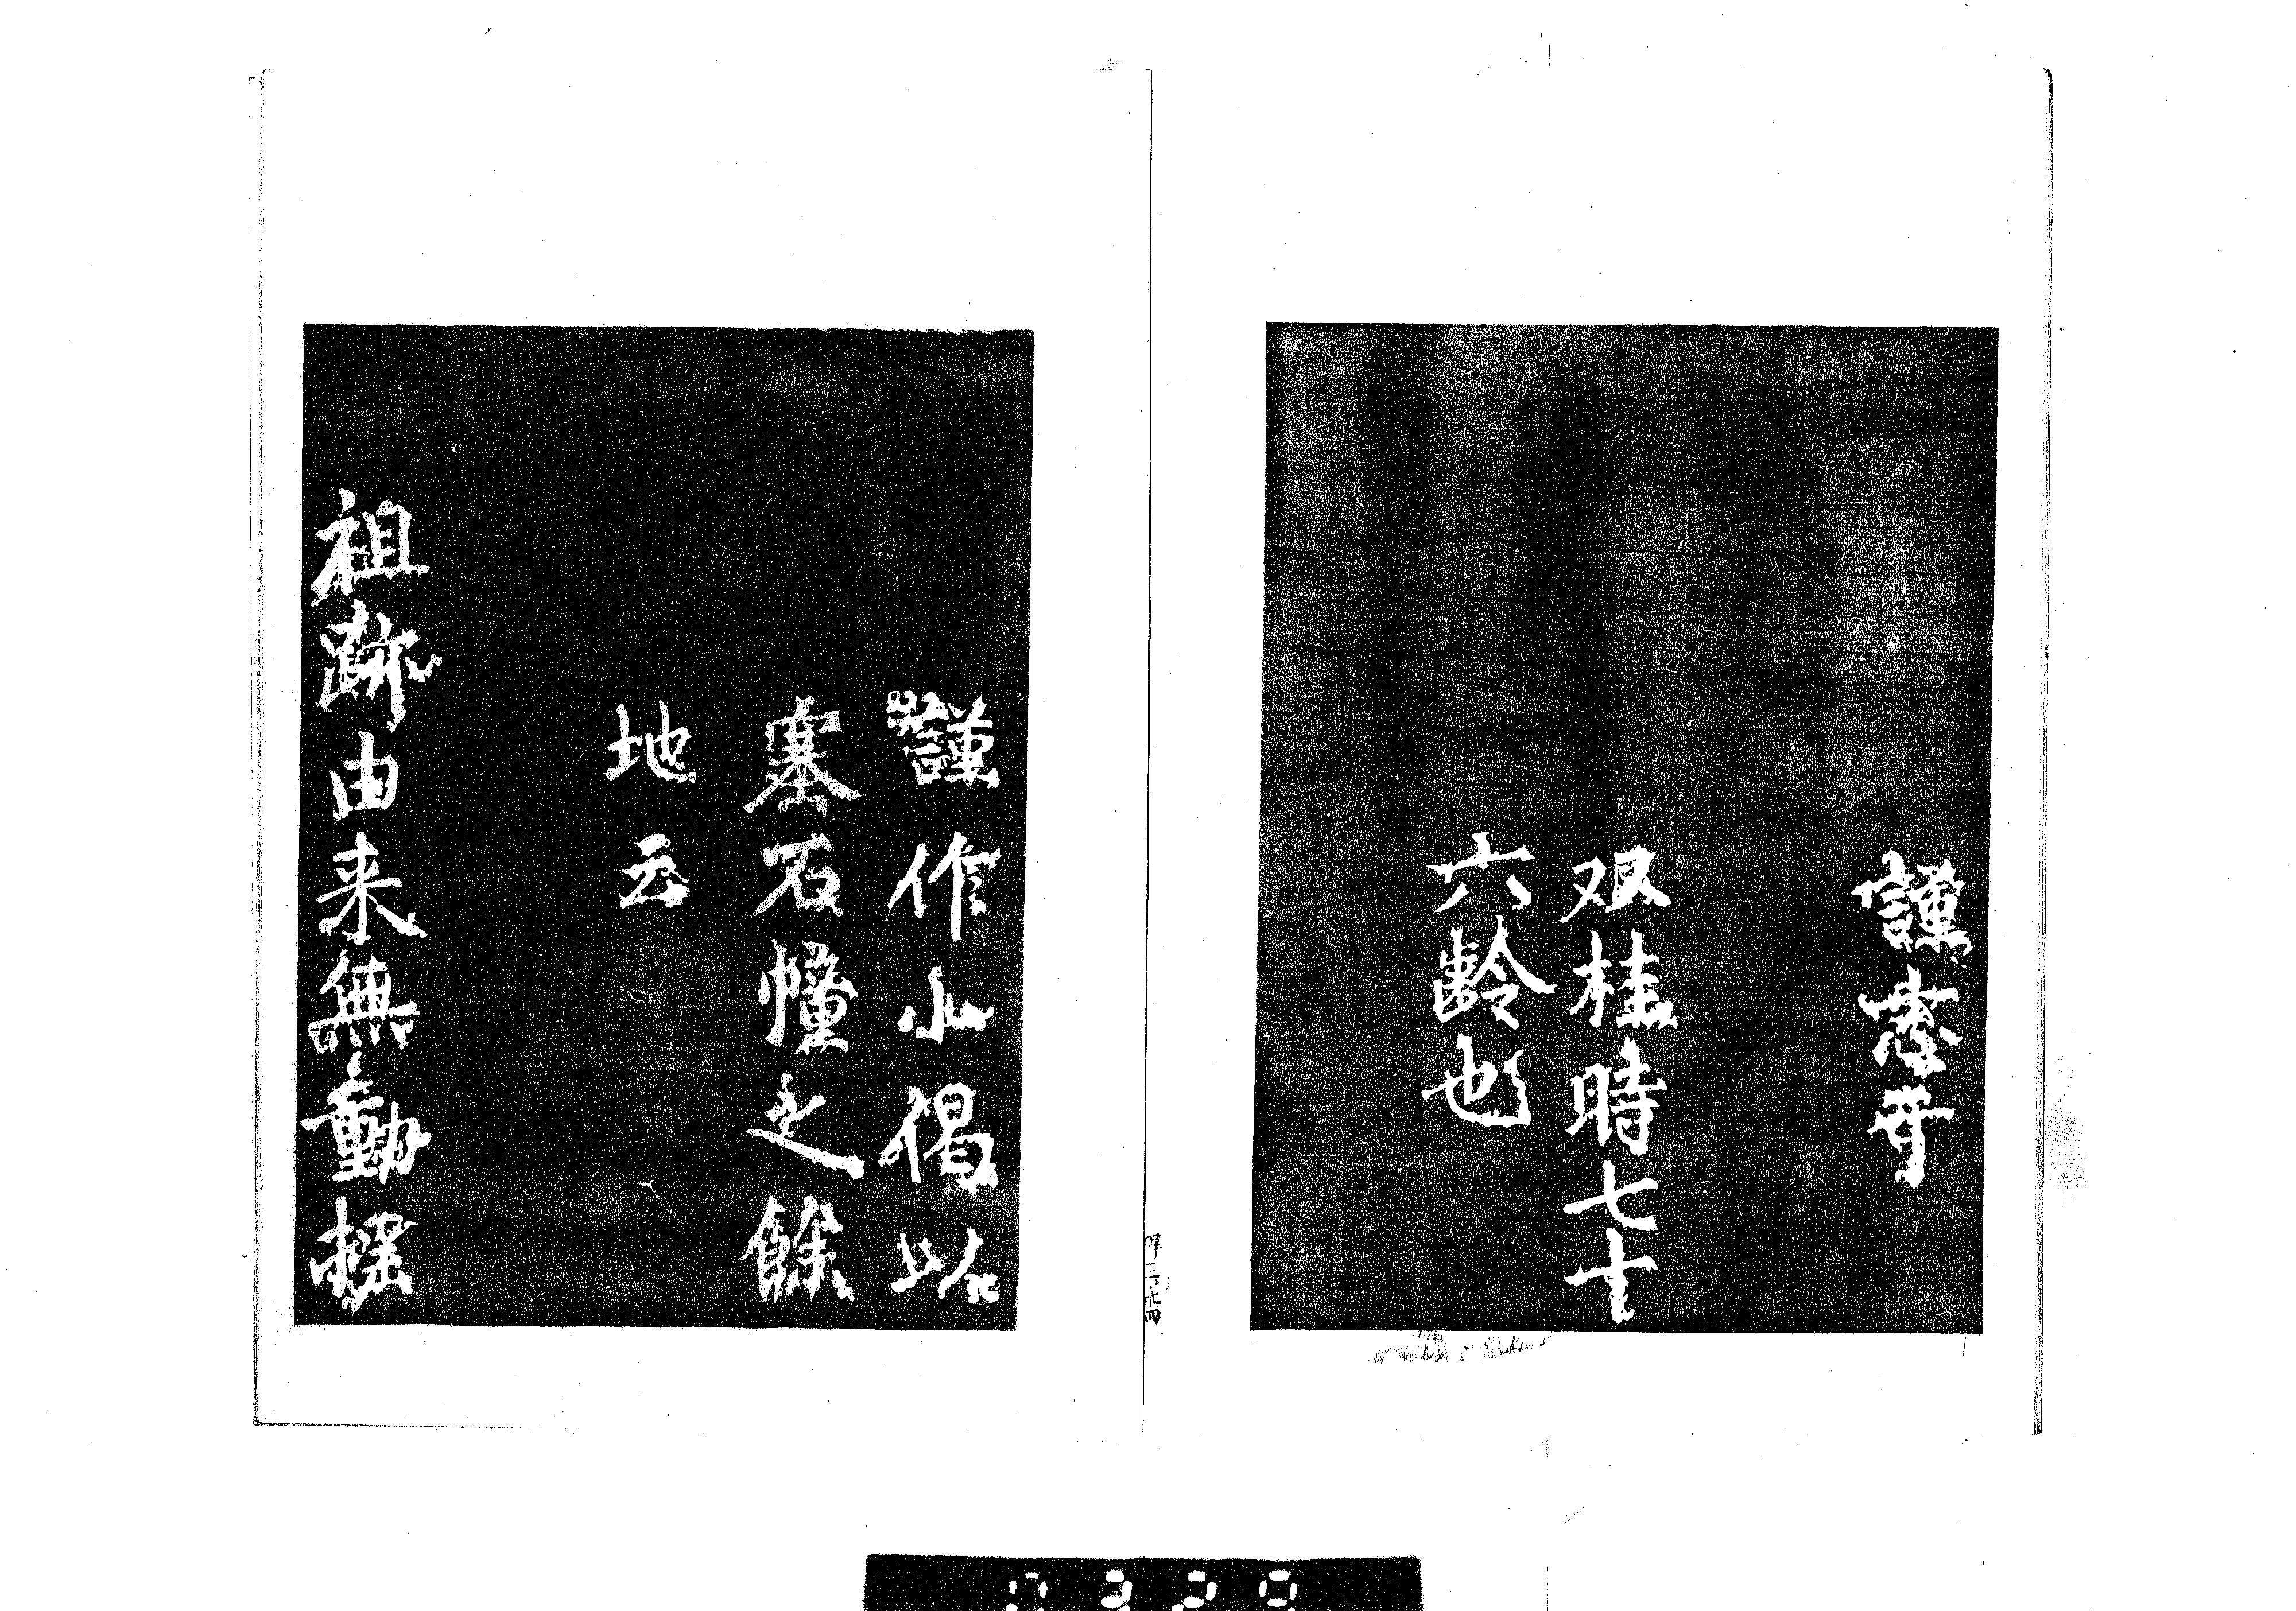 謹
双桂時七十
六齢也
謹作小偈以
塞石幢之餘
地云
祖跡由来無動揺